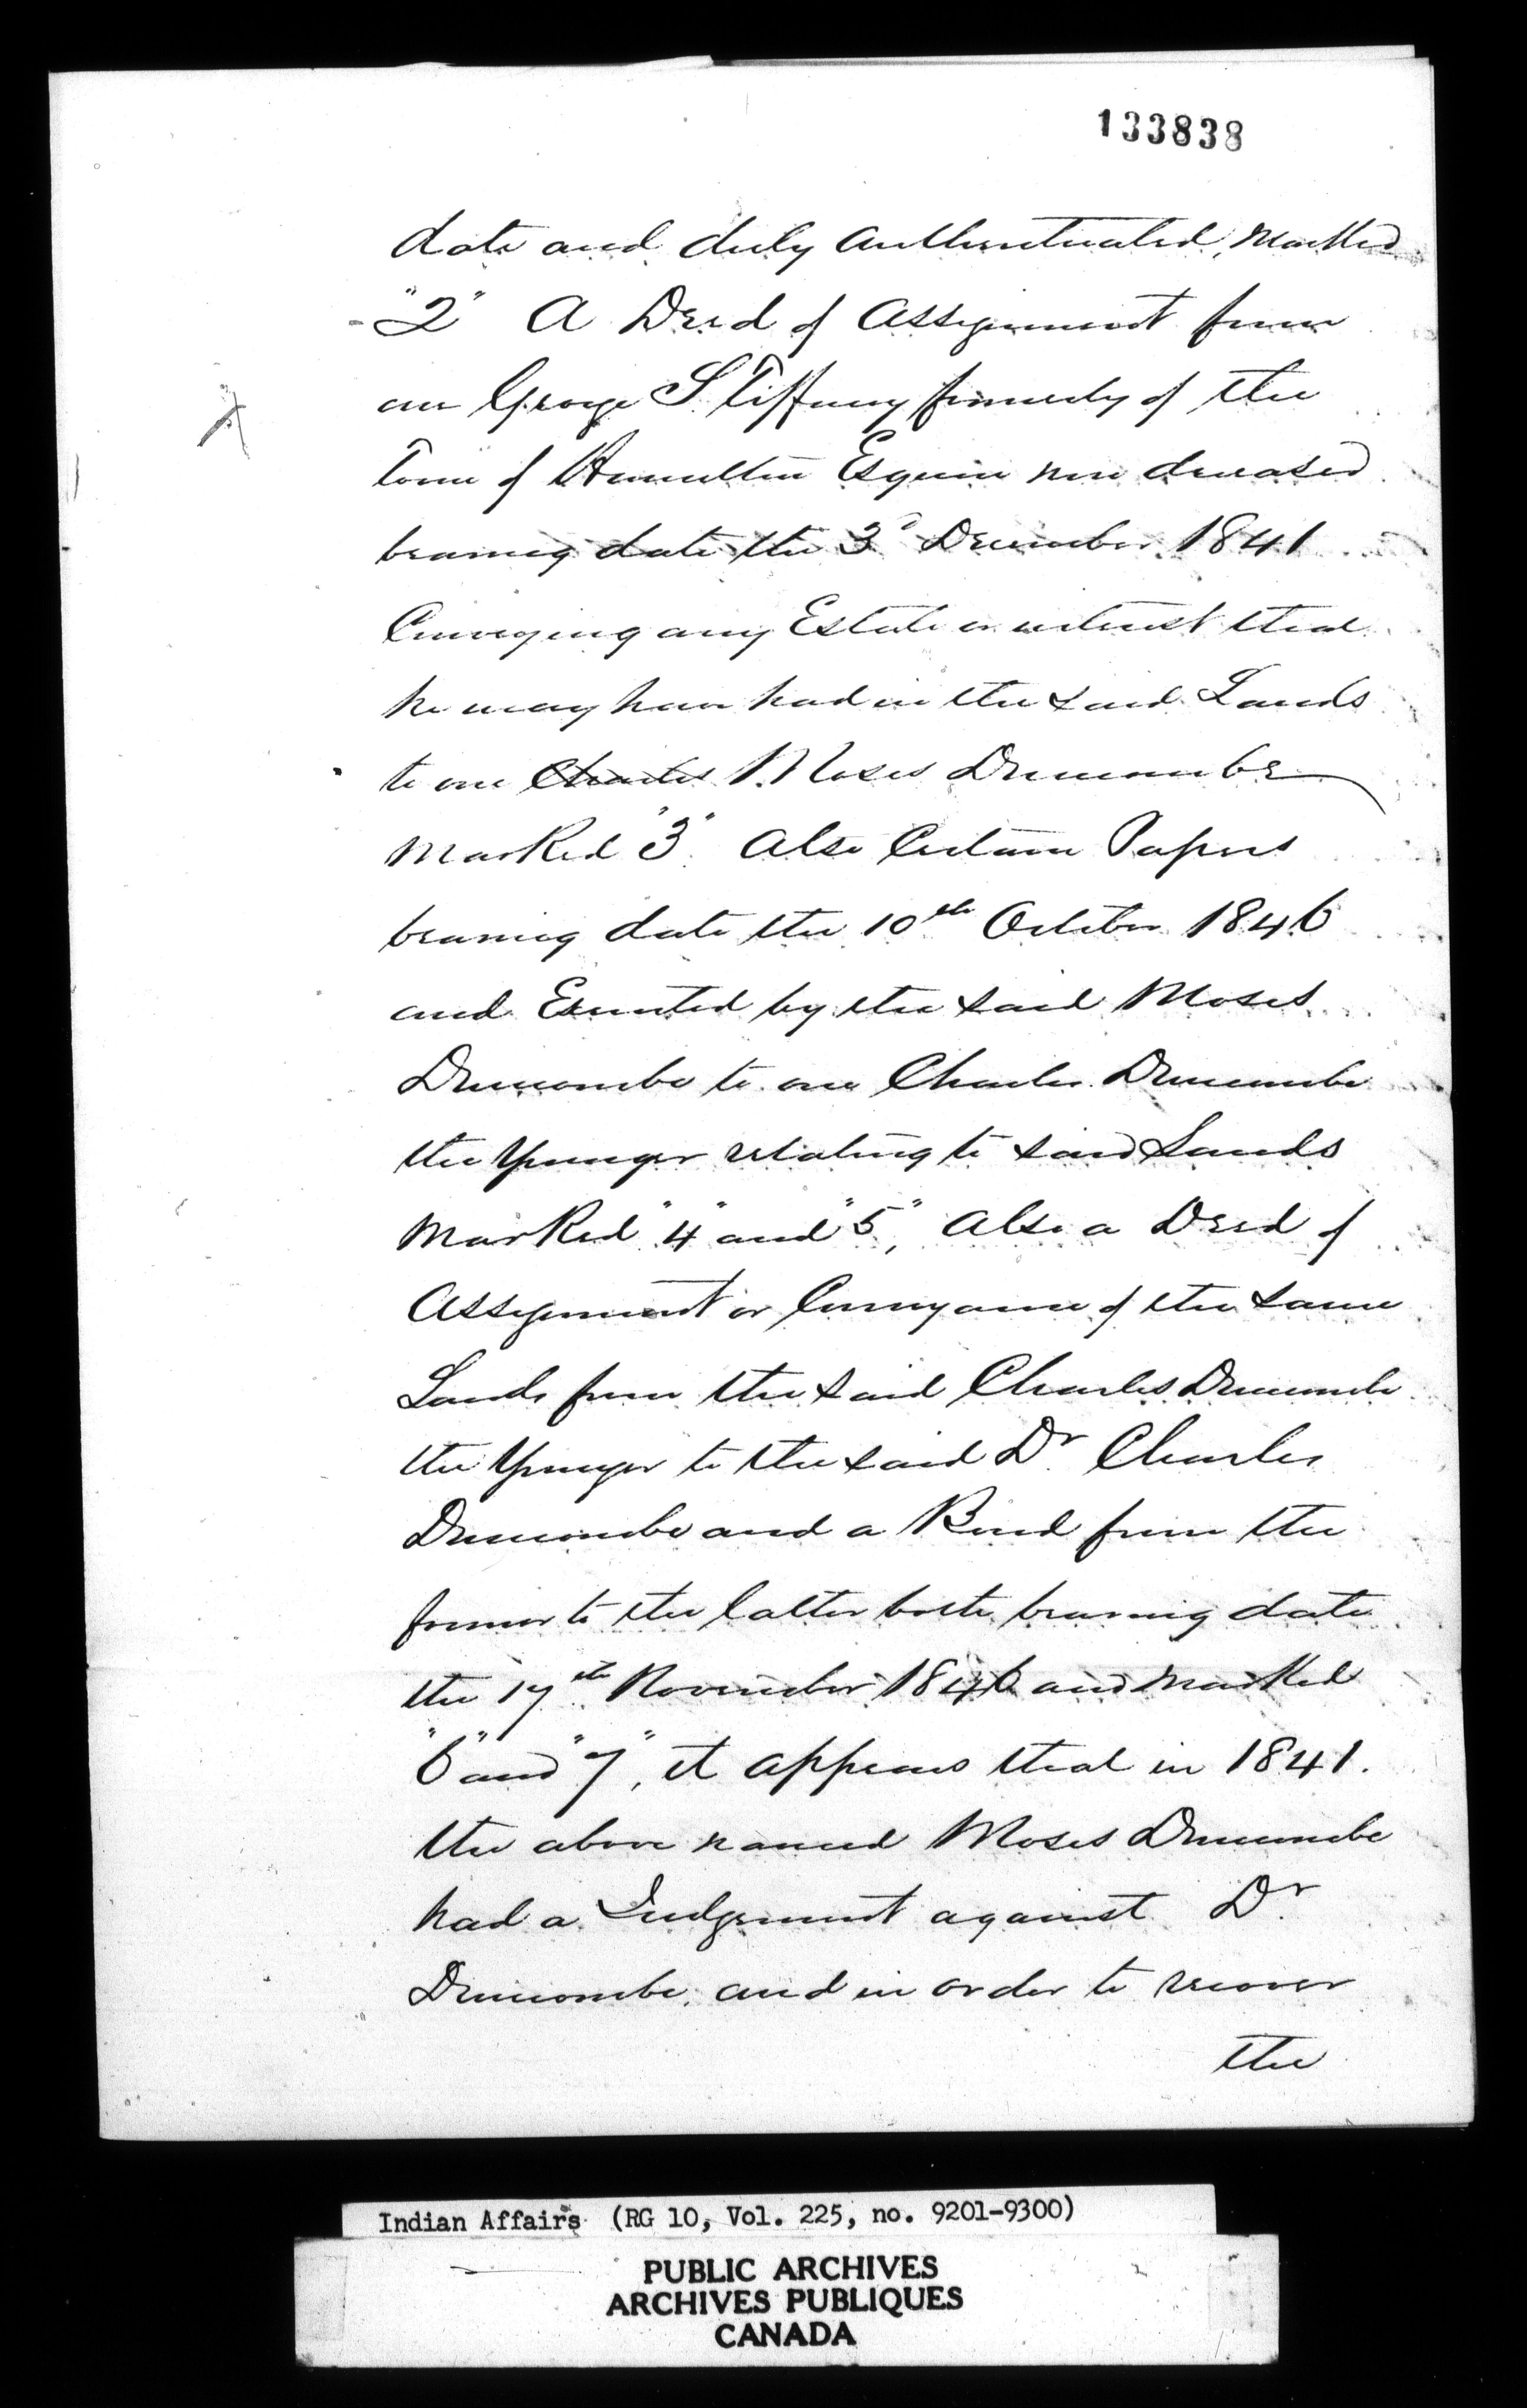 133838
date and duly authenticated, marked
"2" A Deed of Assignment from
one George S. Tiffany formerly of the
Town of Hamilton Esquire now deceased
bearing date the 3d December 1841
Conveying any Estate or interest that
he may have had in the said Lands
to one Charles Moses Duncombe
marked "3". Also Certain Papers
bearing date the 10th October 1846
and Executed by the said Moses
Duncombe to one Charles Duncombe
the Younger relating to said Lands
marked "4" and "5", Also a Deed of
Assignment or Conveyance of the same
Lands from the said Charles Duncombe
the Younger to the said Dr Charles
Duncombe and a Bond from the
former to the latter both bearing date
the 17th November 1846 and marked
"6" and "7", it appears that in 1841.
the above named Moses Duncombe
had a Judgement against Dr
Duncombe, and in order to recover
the
Indian Affairs (RG 10, Vol. 225, no. 9201-9300)
PUBLIC ARCHIVES
ARCHIVES PUBLIQUES
CANADA